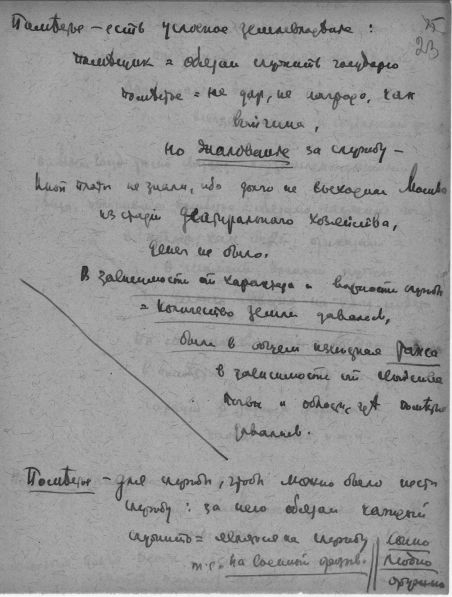 Поместье – есть условное землевладение:
23
помещик = обязан служить государю
поместье = не дар, не награда, как
вотчина,
но жалованье за службу –
иной платы не знали, ибо долго не выходила Москва
из стадии натурального хозяйства,
денег не было.
В зависимости от характера и важности службы
= количество земли давалось,
была в общем исходная
в зависимости от качества
почвы и области, где поместье
давалось.
Поместье – для службы, чтобы можно было нести
службу: за него обязан каждый
служить = являться на службу конно
т.е. на военный людно
оружно